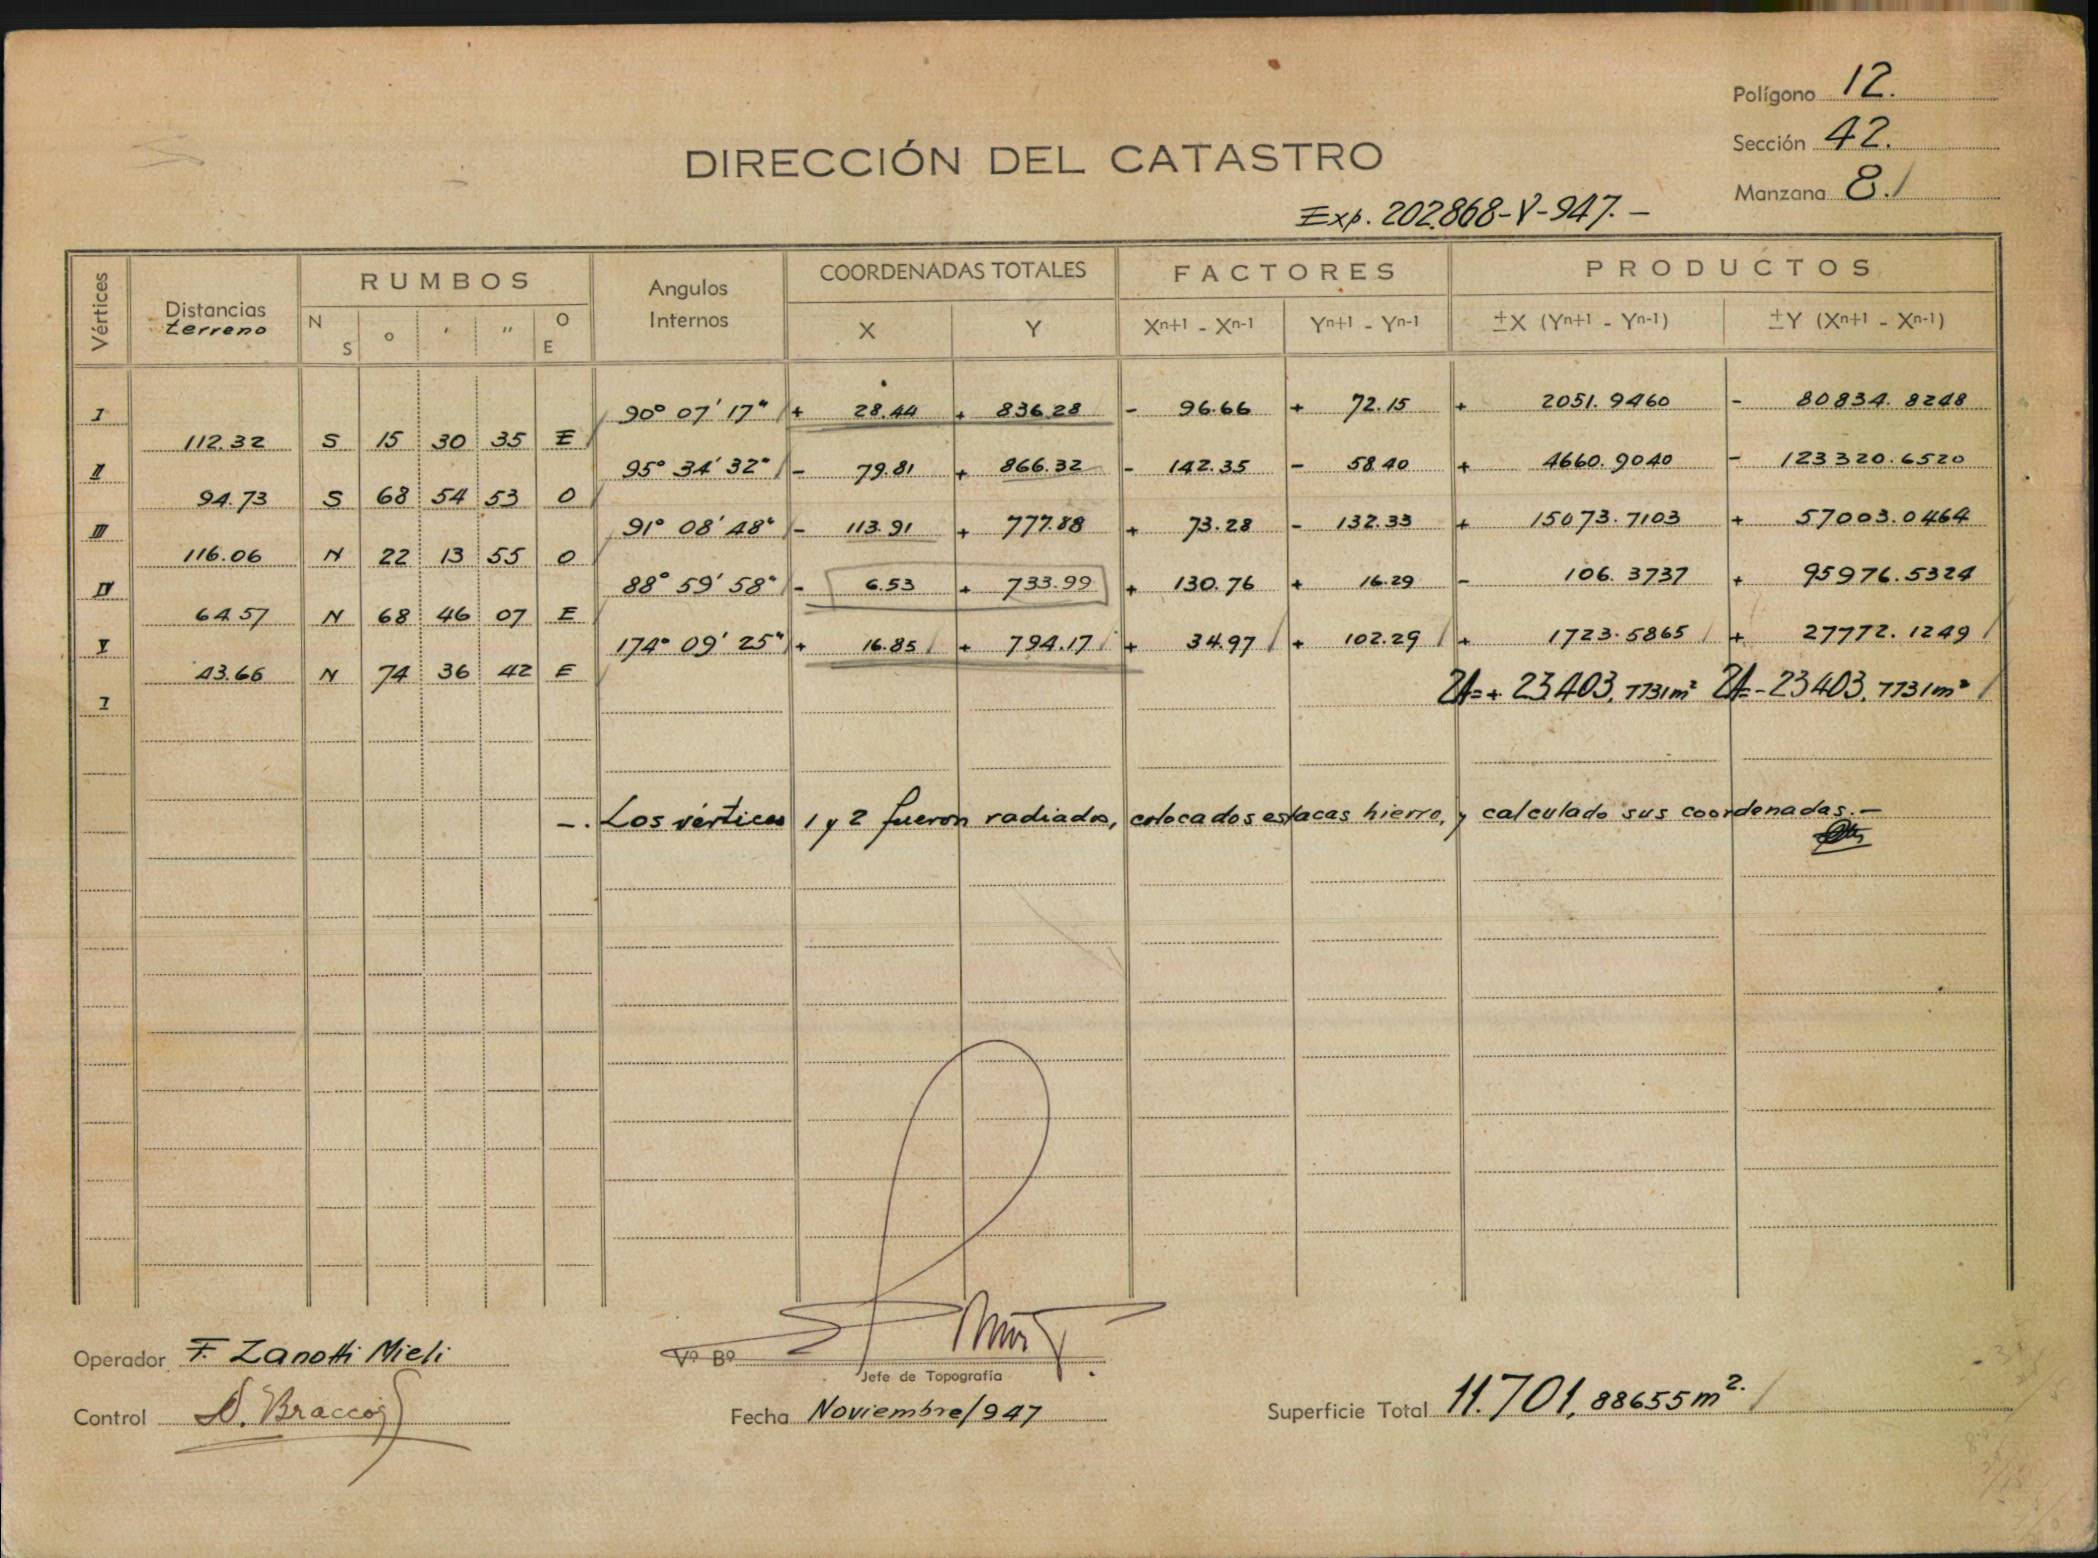 Polígono 12.
Sección 42.
Manzana 8.
DIRECCIÓN DEL CATASTRO
Exp. 202.868-V-947.-
Vértices Distancias terreno RUMBOS N S o ' " O E Angulos Internos COORDENADAS TOTALES X Y FACTORES Xn+1 - Xn-1 Yn+1 - Yn-1 PRODUCTOS ±X (Yn+1 - Yn-1) ±Y (Xn+1 - Xn-1)
I 90° 07' 17" + 28.44 + 836.28 - 96.66 + 72.15 + 2051.9460 - 80834.8248
112.32 S 15 30 35 E
II 95° 34' 32" - 79.81 + 866.32 - 142.35 - 58.40 + 4660.9040 - 123320.6520
94.73 S 68 54 53 O
III 91° 08' 48" - 113.91 + 777.88 + 73.28 - 132.33 + 15073.7103 + 57003.0464
116.06 N 22 13 55 O
IV 88° 59' 58" - 6.53 + 733.99 + 130.76 + 16.29 - 106.3737 + 95976.5324
64.57 N 68 46 07 E
V 174° 09' 25" + 16.85 + 794.17 + 34.97 + 102.29 + 1723.5865 + 27772.1249
43.66 N 74 36 42 E
I 2A=+ 23403,7731m² 2A=-23403,7731m²
-. Los vértices 1 y 2 fueron radiados, colocados estacas hierro, y calculado sus coordenadas.-
Operador F. Zanotti Mieli
Vº Bº
Jefe de Topografía
Control
Fecha Noviembre/947
Superficie Total 11.701,88655m².